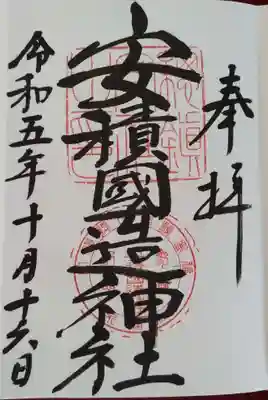 奉拝
安積國造神社
令和五年十月十六日